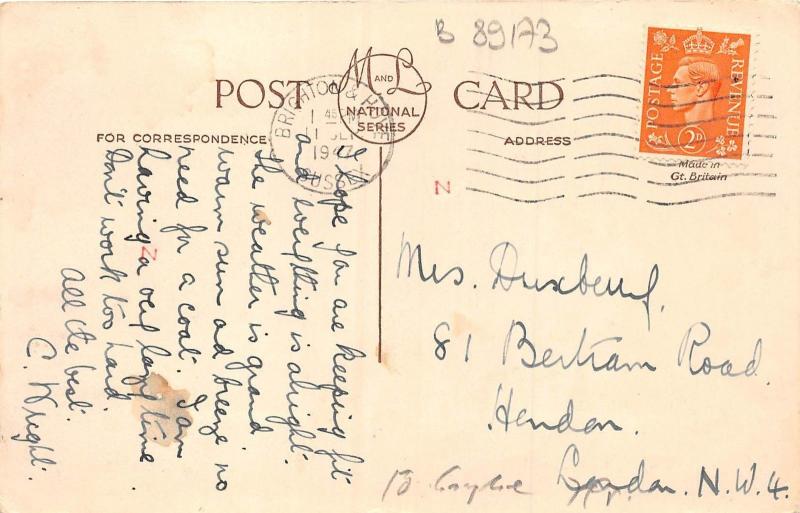 B 89173
POST CARD
M AND L
NATIONAL
SERIES
BRIGHTON & H
1 45
19
SUSSEX
POSTAGE REVENUE
2D
FOR CORRESPONDENCE
ADDRESS
Made in
Gt. Britain
N
N
hope you are keeping fit
and everything is alright.
The weather is grand
warm sun and breeze no
need for a coat. I am
having a very lazy time
Don't work too hard.
All the best.
C. Wright.
Mrs. Duxbury,
81 Bertram Road.
Hendon.
London. N.W.4.